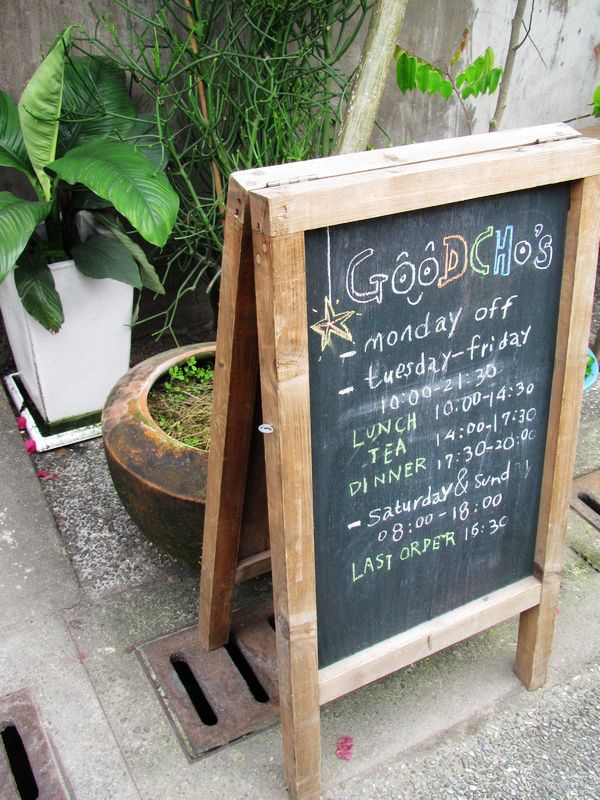 GôôDCHo's
- monday off
- tuesday-friday
10:00-21:30
LUNCH 10:00-14:30
TEA 14:00-17:30
DINNER 17:30-20:00
- Saturday & Sunday
08:00-18:00
LAST ORDER 16:30